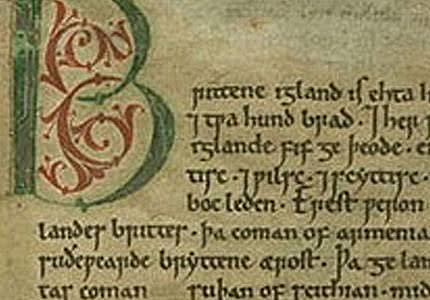 Brittene igland is ehta h
⁊ tƿa hund brad. ⁊ her
iglande fif ge þeode. en
tisc. ⁊ ƿilsc. ⁊ scyttisc.
boc leden. Erest ƿeron
landes brittes. þa coman of armenia
suðeƿearde bryttene ærost. Þa ge lam
tas coman suþan of scithian. mid